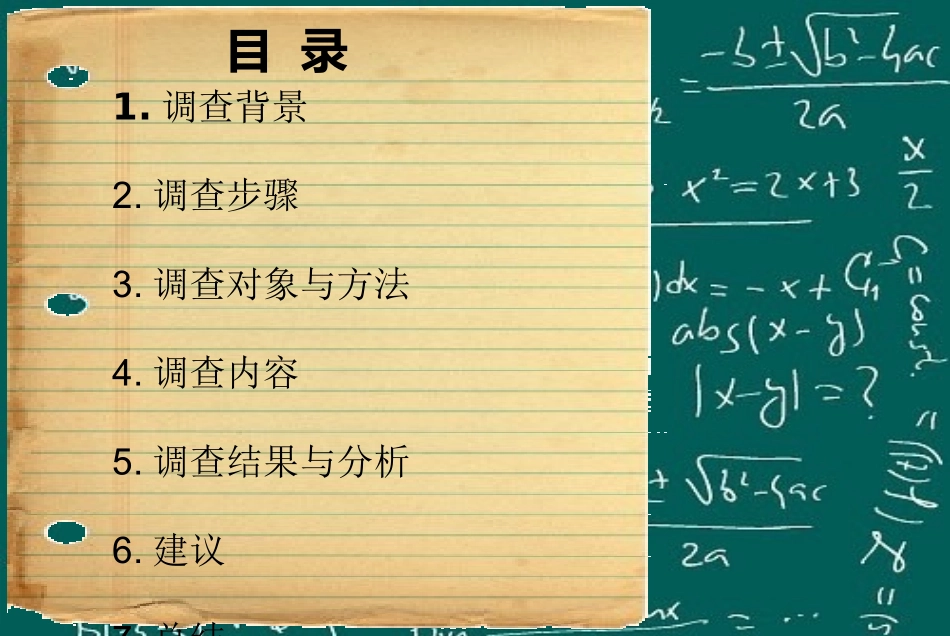 目 录
1. 调查背景
2. 调查步骤
3. 调查对象与方法
4. 调查内容
5. 调查结果与分析
6. 建议
-b±√b²-4ac
=
2a
x/2
x²=2x+3
)dx = -x + C₁
abs(x-y)
|x-y|=?
± √b²-4ac
2a
= ...